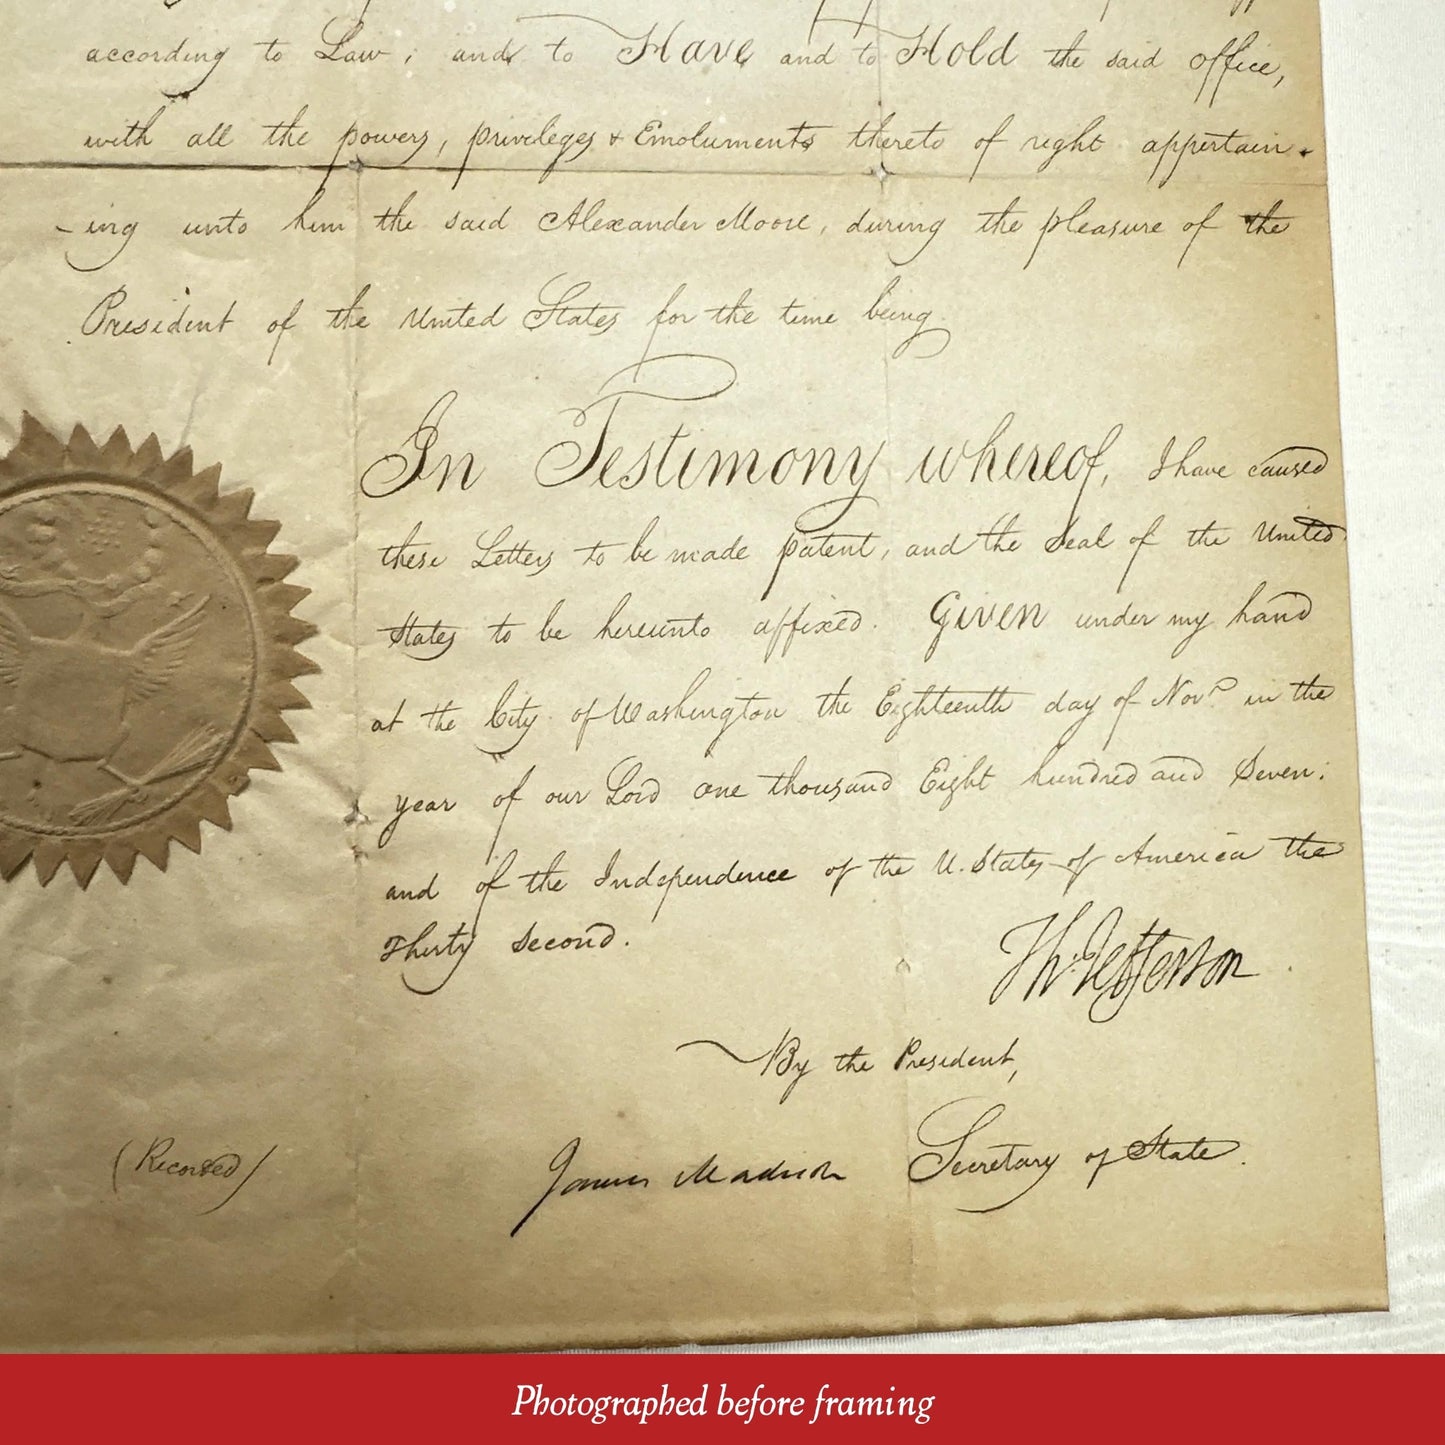 according to Law; and to Have and to Hold the said office,
with all the powers, privileges & Emoluments thereto of right appertain-
-ing unto him the said Alexander Moore, during the pleasure of the
President of the United States for the time being.
In Testimony whereof, I have caused
these Letters to be made patent, and the Seal of the United
States to be hereunto affixed. Given under my hand
at the City of Washington the Eighteenth day of Novr. in the
year of our Lord one thousand Eight hundred and Seven:
and of the Independence of the U. States of America the
Thirty Second.
Th: Jefferson
By the President,
James Madison Secretary of State.
(Recorded)
Photographed before framing